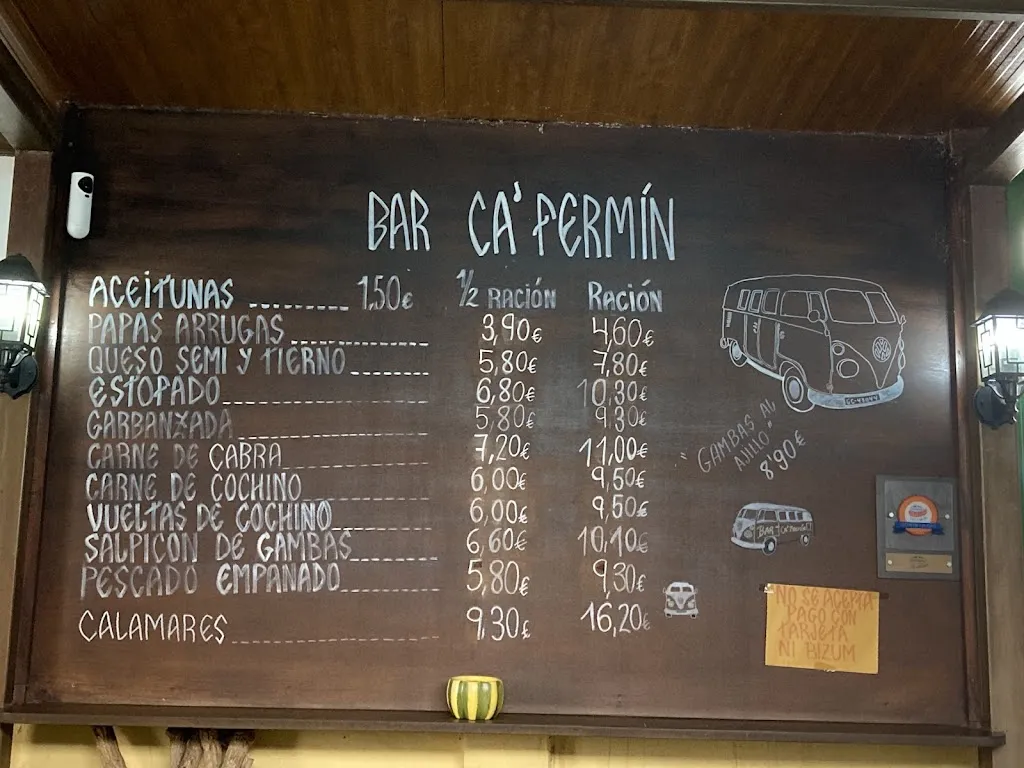 BAR CA' FERMÍN
ACEITUNAS 1.50€ 1/2 RACIÓN RACIÓN
PAPAS ARRUGAS 3,90€ 4,60€
QUESO SEMI Y TIERNO 5,80€ 7,80€
ESTOFADO 6,80€ 10,30€
GARBANZADA 5,80€ 9,30€
CARNE DE CABRA 7,20€ 11,00€
CARNE DE COCHINO 6,00€ 9,50€
VUELTAS DE COCHINO 6,00€ 9,50€
SALPICÓN DE GAMBAS 6,60€ 10,10€
PESCADO EMPANADO 5,80€ 9,30€
CALAMARES 9,30€ 16,20€
"GAMBAS AL
AJILLO"
8'90€
BAR CA' FERMÍN
NO SE ACEPTA
PAGO CON
TARJETA
NI BIZUM